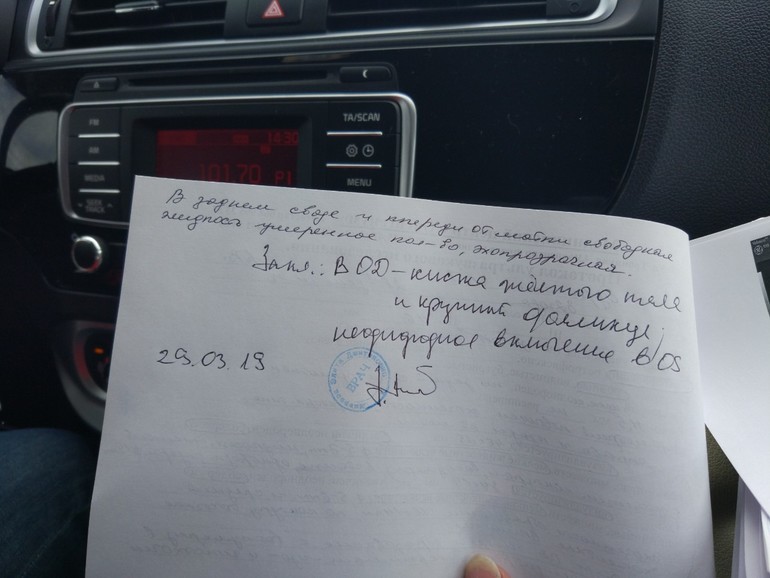 TA/SCAN
FM
14:90
AM
101.70 P1
MEDIA
MENU
SEEK
TRACK
В заднем своде и кпереди от матки свободная
жидкость умеренное кол-во, эхопрозрачная.
Закл.: В OD - киста жёлтого тела
и крупный фолликул;
неоднородное включение в OS
29.03.19
ВРАЧ